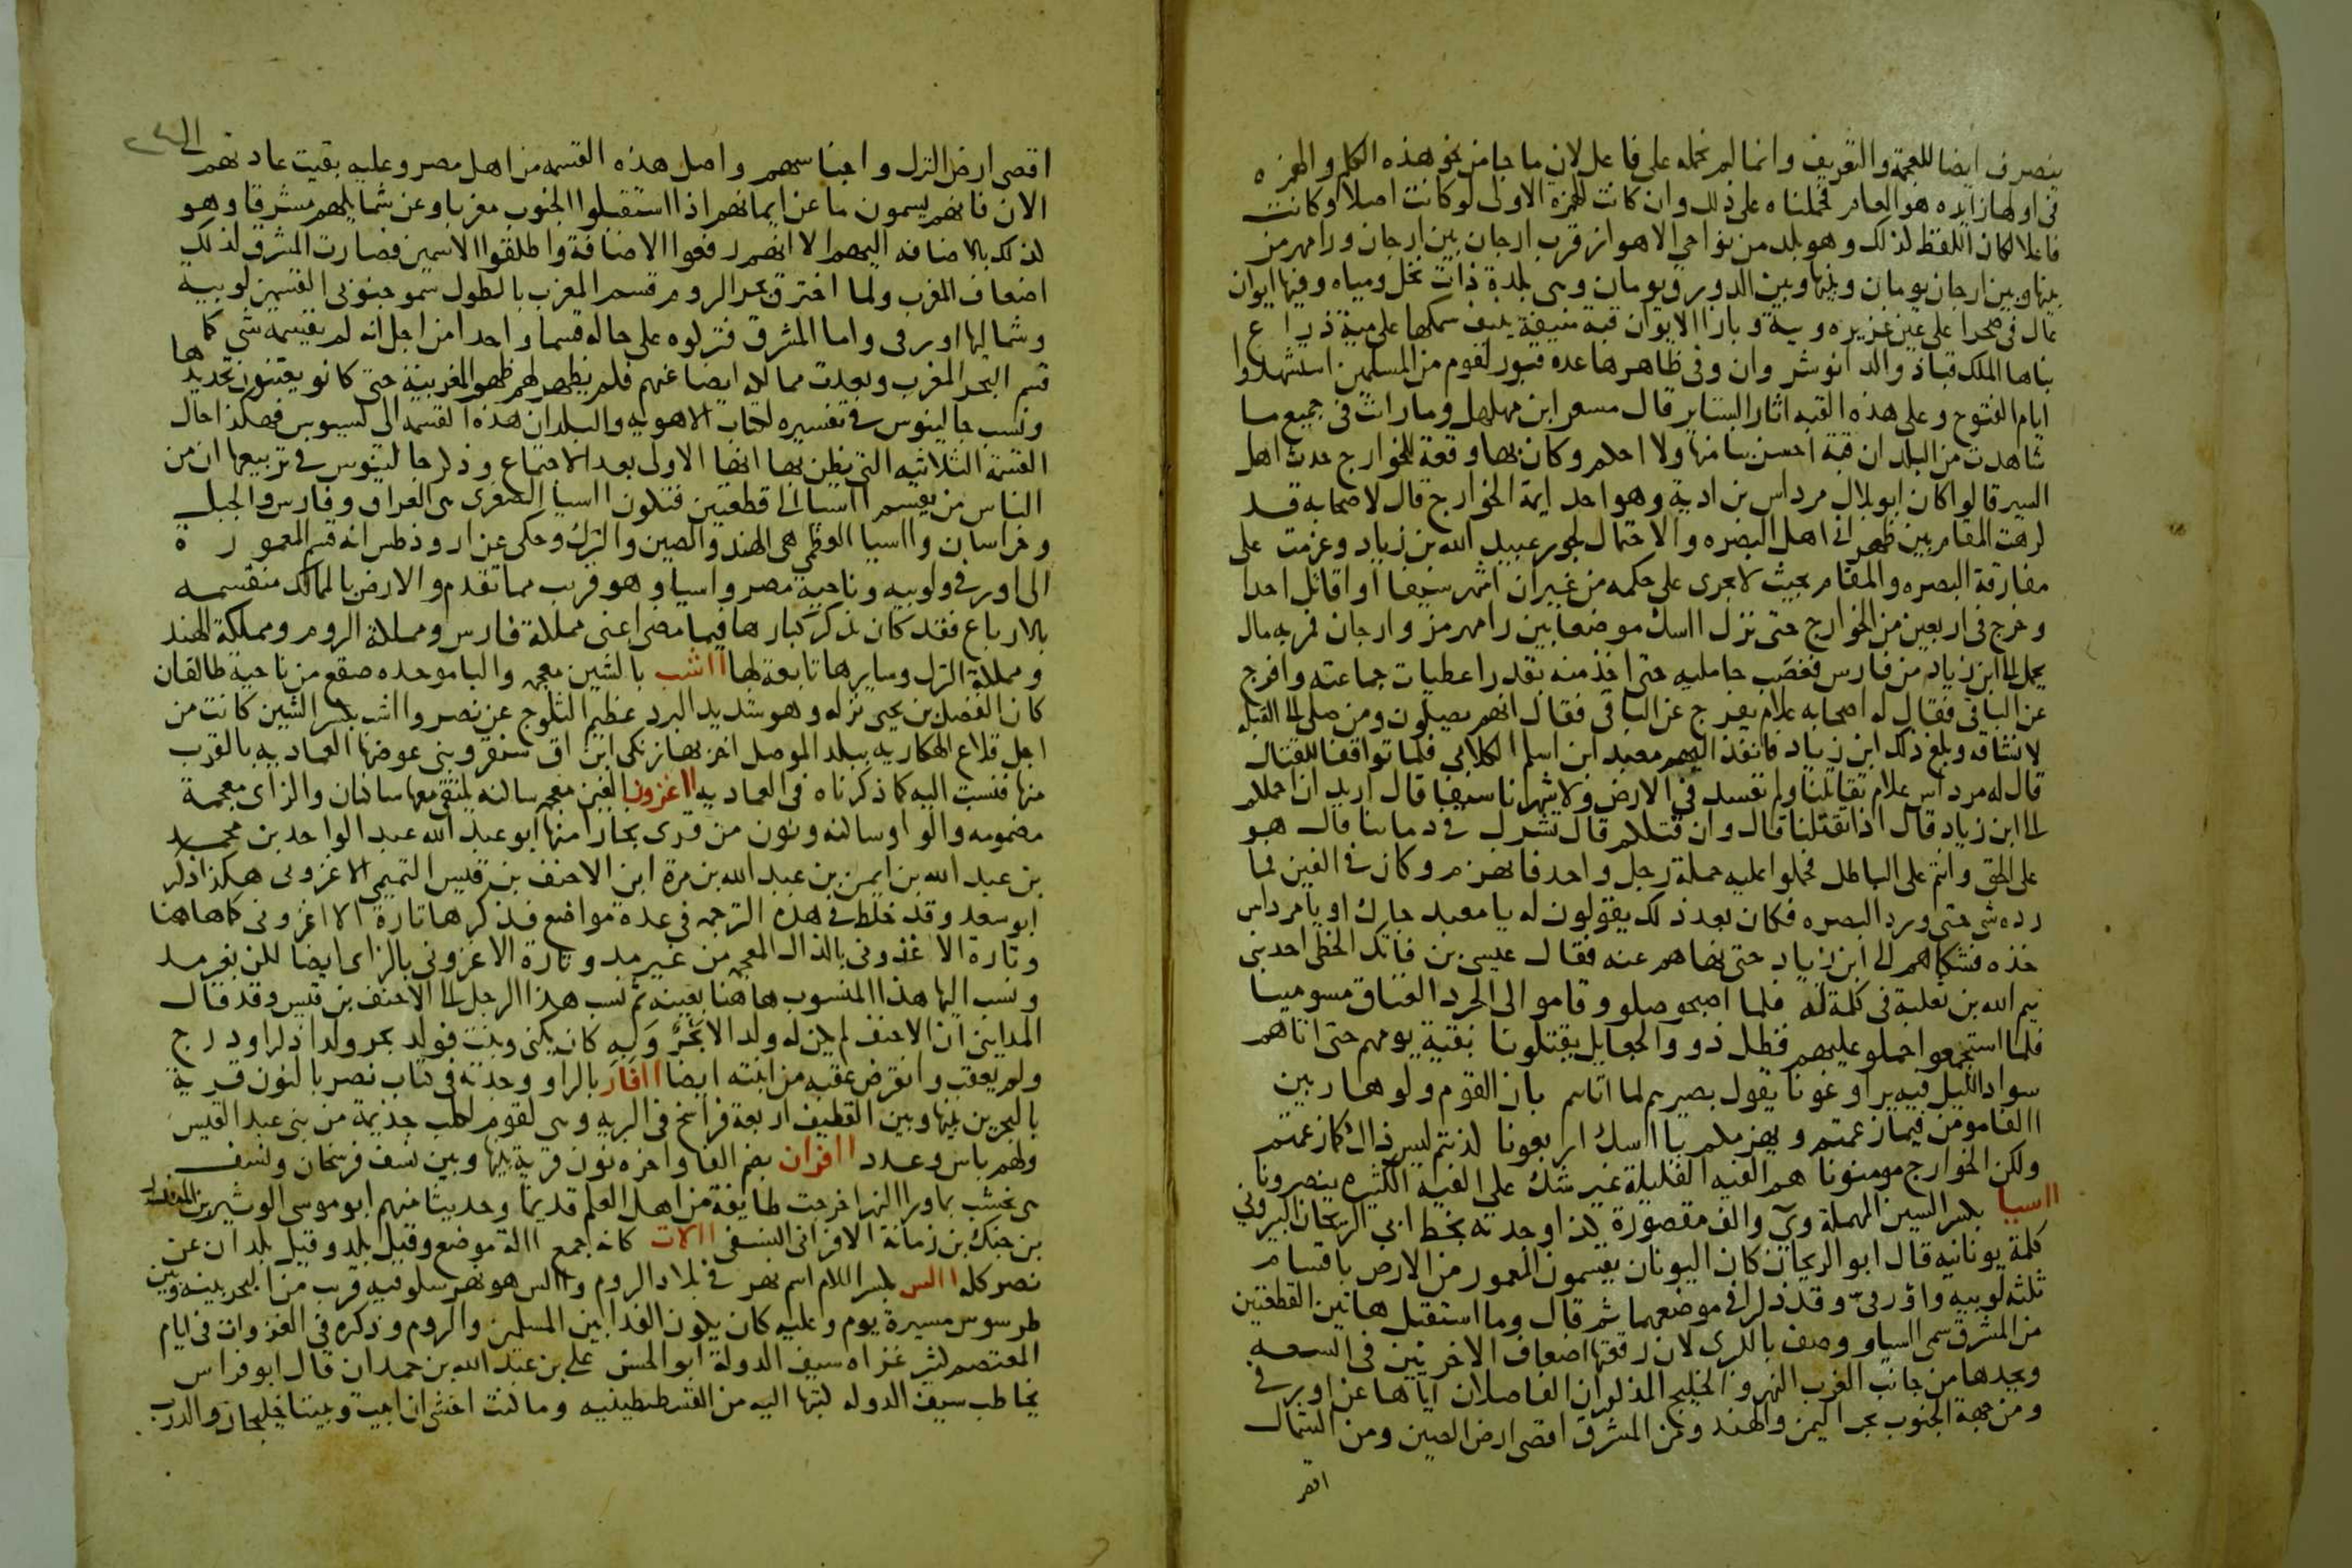 ينصرف ايضا للعجمة والتعريف وانما لم نحمله على فاعل لان ما جا من نحو هذه الكلم والهمزه
فى اولها زايده هو العام فحملناه على ذلك وان كانت الهمزه الاولى لو كانت اصلا وكانت
فاعلا لكان اللفظ لذلك وهو بلد من نواحي الاهواز قرب ارجان بين ارجان ورامهرمز
بينها وبين ارجان يومان وبينها وبين الدورق يومان وهى بلدة ذات نخل ومياه وفيها ايوان
عال فى صحرا على عين غزيره وبية وبازا الايوان قبة منيفة ينيف سمكها على مية ذراع
بناها الملك قباذ والد انوشروان وفى ظاهرها عده قبور لقوم من المسلمين استشهدوا
ايام الفتوح وعلى هذه القبه اثار الستاير قال مسعر ابن مهلهل وما رات فى جميع ما
شاهدت من البلدان قبة احسن بنا منها ولا احكم وكان بها وقعة للخوارج حدث اهل
السير قالوا كان ابو بلال مرداس بن ادية وهو احد ايمة الخوارج قال لاصحابه قد
كرهت المقام بين ظهرانى اهل البصره والاحتمال لجور عبيد الله بن زياد وعزمت على
مفارقة البصره والمقام بحيث لا يجرى على حكمه من غير ان اشهر سيفا او اقاتل احدا
وخرج فى اربعين من الخوارج حتى نزل ااسك موضعا بين رامهرمز وارجان فمر به مال
يحمل الى ابن زياد من فارس فغصب حامليه حتى اخذ منه بقدر اعطيات جماعته وافرج
عن الباقى فقال له اصحابه علام يفرج عن الباقى فقال انهم يصلون ومن صلى الى القبله
لا نشاقه وبلغ ذلك ابن زياد فانفذ اليهم معبد ابن اسلم الكلابى فلما تواقفا للقتال
قال له مرداس علام تقاتلنا ولم نفسد فى الارض ولا شهرنا سيفا قال اريد ان احملكم
الى ابن زياد قال اذا تقتلنا قال وان قتلكم قال تشرك فى دماينا قال هو
على الحق وانتم على الباطل فحملوا عليه حملة رجل واحد فانهزم وكان فى الفين فما
رده شى حتى ورد البصره فكان بعد ذلك يقولون له يا معبد جارك او يا مرداس
خذه فشكاهم الى ابن زياد حتى نهاهم عنه فقال عيسى بن فاتك الخطى احد بنى
تيم الله بن ثعلبة فى كلمة له فلما اصبحو صلو وقامو الى الجرد العتاق مسومينا
فلما استجمعوا حملو عليهم فظل ذوو الجعايل يقتلونا بقية يومهم حتى اتاهم
سواد الليل فيه يراوغونا يقول بصيرهم لما اتاهم بان القوم ولو هاربين
االفا مومن فيما زعمتم ويهزمكم باااسك اربعونا كذبتم ليس ذاك كما زعمتم
ولكن الخوارج مومنونا هم الفيه القليلة غير شك على الفيه الكثيره ينصرونا
ااسيا بكسر السين المهملة وى والف مقصورة كذا وجدته بخط ابى الريحان البيرونى
كلمة يونانيه قال ابو الريحان كان اليونان يقسمون المعمور من الارض باقسام
ثلثه لوبيه واورفى وقد ذكرا فى موضعهما ثم قال وما استقبل هاتين القطعتين
من المشرق سمى ااسيا ووصف بالكبرى لان رقعتها اضعاف الاخريين فى السعه
ويحدها من جانب الغرب النهر والخليج المذكوران الفاصلان اياها عن اوربى
ومن جهة الجنوب بحر اليمن والهند ومن المشرق اقصى ارض الصين ومن الشمال
اقصى ارض الترك واجناسهم واصل هذه القسمه من اهل مصر وعليه بقيت عادتهم الى
الان فانهم يسمون ما عن ايمانهم اذا استقبلوا الجنوب مغربا وعن شمايلهم مشرقا وهو
لذلك بالاضافه اليهم الا انهم رفعوا الاضافة واطلقوا الاسمين فصارت المشرق لذلك
اضعاف المغرب ولما اخترق بحر الروم قسم المغرب بالطول سمو جنوبى القسمين لوبية
وشماليها اورفى واما المشرق فتركوه على حاله قسما واحدا من اجل انه لم يقسمه شى كما
قسم البحر المغرب وبعدت ممالكه ايضا عنهم فلم يظهر لهم ظهور المغربية حتى كانو يعتنون بتحديدها
ونسب جالينوس فى تفسيره لكتاب الاهويه والبلدان هذه القسمه الى اسيوس فهكذا حال
القسمة الثلاثيه التى يظن بها انها الاولى بعد الاجتماع وذكر جالينوس فى تربيعها ان من
الناس من يقسم ااسيا الى قطعتين فتكون ااسيا الصغرى هى العراق وفارس والجبل
وخراسان وااسيا العظمى هى الهند والصين والترك وحكى عن اروذطس انه قسم المعمورة
الى اورفى ولوبيه وناحية مصر واسيا وهو قريب مما تقدم والارض بالممالك منقسمه
بالارباع فقد كان يذكر كبارها فيما مضى اعنى مملكة فارس ومملكة الروم ومملكة الهند
ومملكة الترك وسايرها تابعة لها ااشب بالشين معجمه والبا موحده صقع من ناحية طالقان
كان الفضل بن يحى نزله وهو شديد البرد عظيم الثلوج عن نصر وااشب بكسر الشين كانت من
اجل قلاع الهكاريه ببلد الموصل اخربها زنكى ابن اق سنقر وبنى عوضها العماديه بالقرب
منها فنسبت اليه كما ذكرناه فى العماديه ااغزون الغين معجمه ساكنه يلتقى معها ساكنان والزاى معجمة
مضمومه والواو ساكنه ونون من قرى بخارا منها ابو عبد الله عبد الواحد بن محمد
بن عبد الله بن ايمن بن عبد الله بن مرة ابن الاحنف بن قيس التميمى الاغزونى هكذا ذكر
ابو سعد وقد خلط فى هذه الترجمه فى عدة مواضع فذكرها تارة الااغزونى كما هاهنا
وتارة الاغذونى بالذال المعجمه من غير مد وتارة الاغزونى بالزاى ايضا لكن بغير مد
ونسب اليها هذا المنسوب هاهنا بعينه ثم نسب هذا الرجل الى الاحنف بن قيس وقد قال
المداينى ان الاحنف لم يكن له ولد الا بحر وبه كان يكنى وبنت فولد بحر ولدا ذكرا ودرج
ولم يعقب وانقرض عقبه من ابنته ايضا اافار بالراو وجدته فى كتاب نصر بالنون قرية
بالبحرين بينها وبين القطيف اربعة فراسخ فى البريه وهى لقوم من كلب جذيمة من بنى عبد القيس
ولهم باس وعدد اافران بضم الفا واخره نون قرية بينها وبين نسف فرسخان ونسف
هى نخشب بما ورا النهر خرجت طايفة من اهل العلم قديما وحديثا منهم ابو موسى الوثير بن المنذر
بن جنك بن زمانة الافرانى النسفى االات كانه جمع االة موضع وقيل بلد وقيل بلدان عن
نصر كله االس بكسر اللام اسم نهر فى بلاد الروم واالس هو نهر سلوقيه قريب من البحر بينه وبين
طرسوس مسيرة يوم وعليه كان يكون الفدا بين المسلمين والروم وذكره فى الغزوات فى ايام
المعتصم كثير غزاه سيف الدولة ابو الحسن على بن عبد الله بن حمدان قال ابو فراس
يخاطب سيف الدوله كتبها اليه من القسطنطينيه وما كنت اخشى ان ابيت وبيننا خليجان والدرب